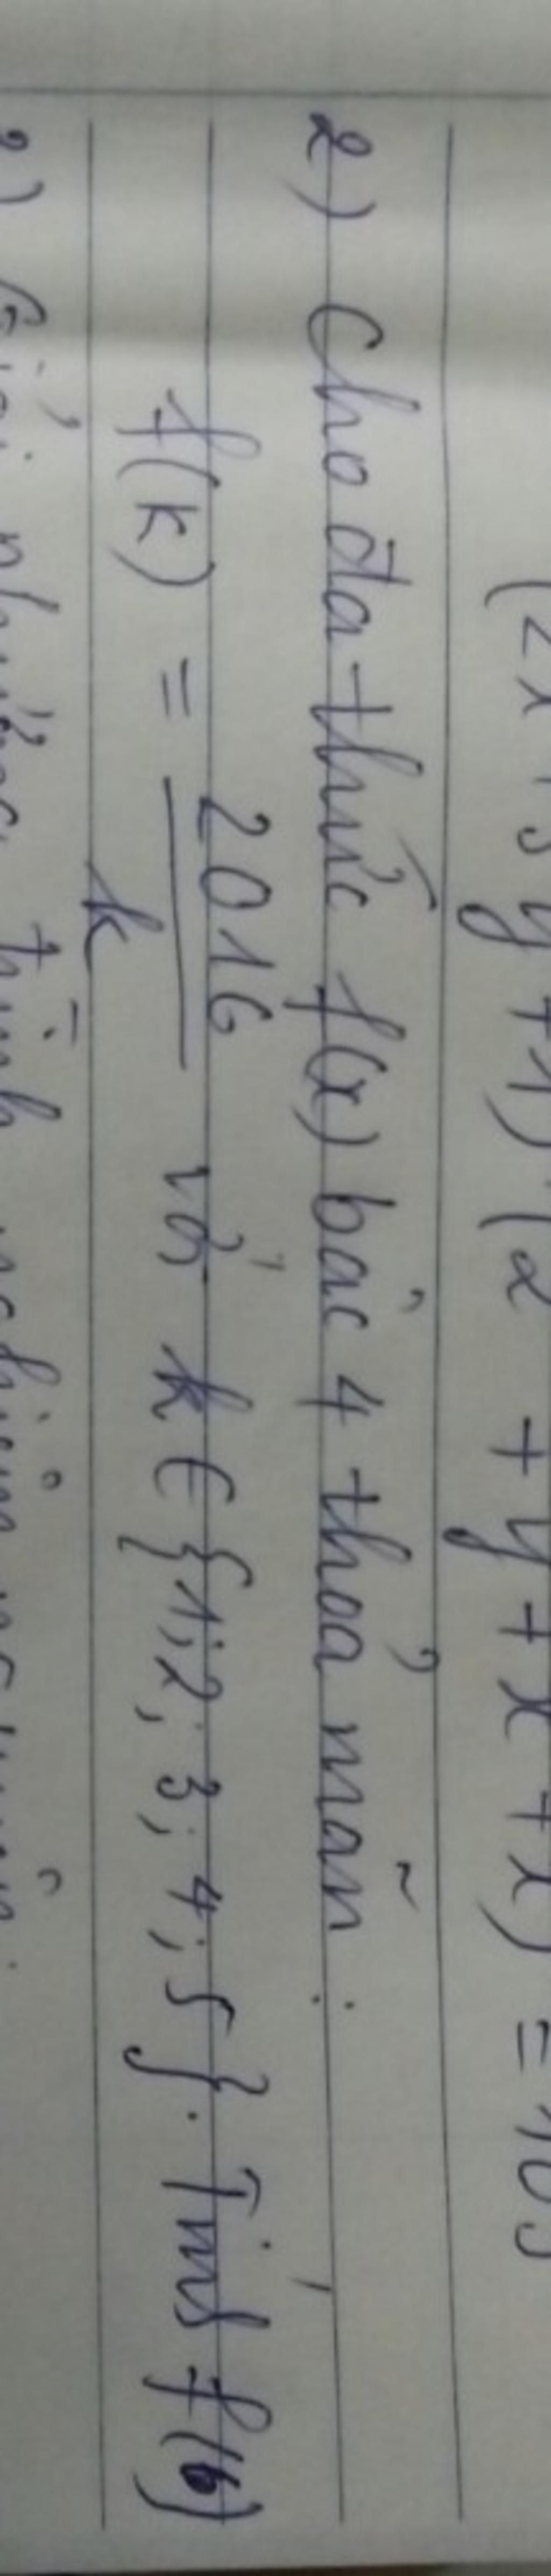 (2x+5y+1)(2 + y + x + x) = 105
2) Cho đa thức f(x) bậc 4 thoả mãn :
f(k) = 2016/k với k ∈ {1; 2; 3; 4; 5}. Tính f(6)
2) Giải phương trình nghiệm nguyên: